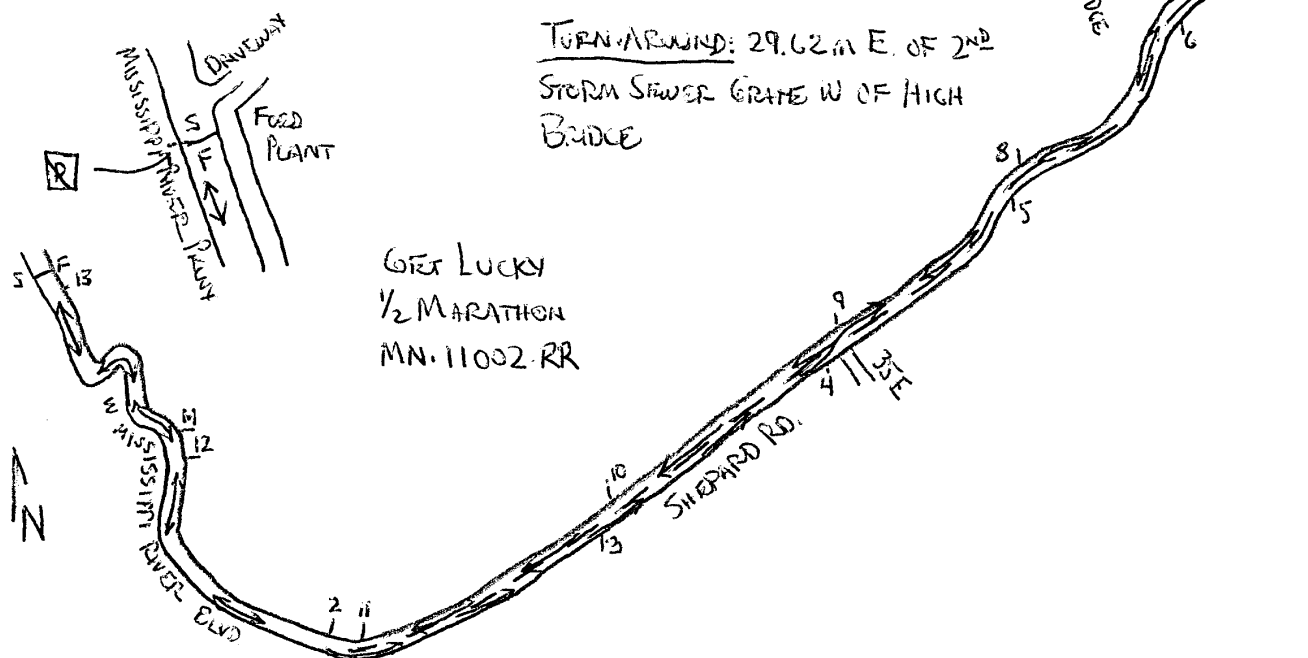 DRIVEWAY
MISSISSIPPI RIVER PKWY
S
F
FORD
PLANT
R
TURN-AROUND: 29.62m E. OF 2ND
STORM SEWER GRATE W OF HIGH
BRIDGE
DGE
6
8
5
GET LUCKY
1/2 MARATHON
MN·11002·RR
S
F
13
9
4
35E
W MISSISSIPPI RIVER BLVD
12
N
SHEPARD RD.
10
3
2
11